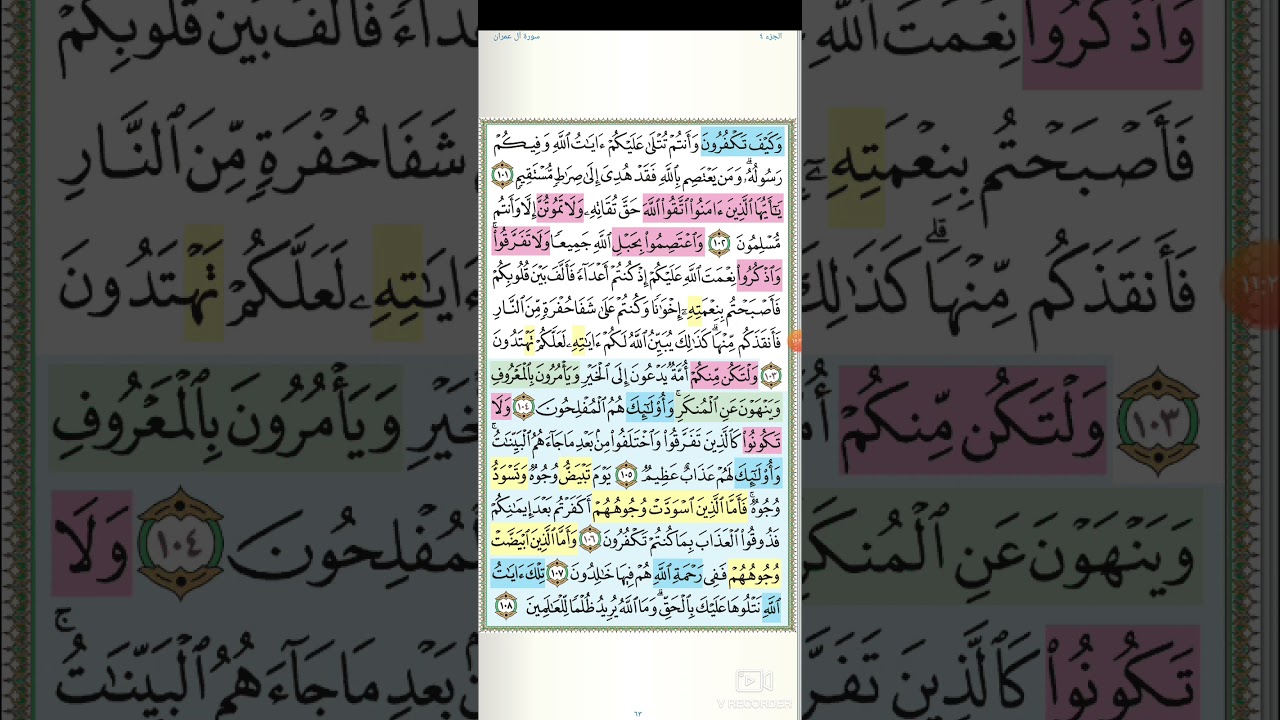 سورة آل عمران
الجزء ٤
وَكَيۡفَ تَكۡفُرُونَ وَأَنتُمۡ تُتۡلَىٰ عَلَيۡكُمۡ ءَايَٰتُ ٱللَّهِ وَفِيكُمۡ
رَسُولُهُۥۗ وَمَن يَعۡتَصِم بِٱللَّهِ فَقَدۡ هُدِيَ إِلَىٰ صِرَٰطٖ مُّسۡتَقِيمٖ ١٠١
يَٰٓأَيُّهَا ٱلَّذِينَ ءَامَنُواْ ٱتَّقُواْ ٱللَّهَ حَقَّ تُقَاتِهِۦ وَلَا تَمُوتُنَّ إِلَّا وَأَنتُم
مُّسۡلِمُونَ ١٠٢ وَٱعۡتَصِمُواْ بِحَبۡلِ ٱللَّهِ جَمِيعٗا وَلَا تَفَرَّقُواْۚ
وَٱذۡكُرُواْ نِعۡمَتَ ٱللَّهِ عَلَيۡكُمۡ إِذۡ كُنتُمۡ أَعۡدَآءٗ فَأَلَّفَ بَيۡنَ قُلُوبِكُمۡ
فَأَصۡبَحۡتُم بِنِعۡمَتِهِۦٓ إِخۡوَٰنٗا وَكُنتُمۡ عَلَىٰ شَفَا حُفۡرَةٖ مِّنَ ٱلنَّارِ
فَأَنقَذَكُم مِّنۡهَاۗ كَذَٰلِكَ يُبَيِّنُ ٱللَّهُ لَكُمۡ ءَايَٰتِهِۦ لَعَلَّكُمۡ تَهۡتَدُونَ
١٠٣ وَلۡتَكُن مِّنكُمۡ أُمَّةٞ يَدۡعُونَ إِلَى ٱلۡخَيۡرِ وَيَأۡمُرُونَ بِٱلۡمَعۡرُوفِ
وَيَنۡهَوۡنَ عَنِ ٱلۡمُنكَرِۚ وَأُوْلَٰٓئِكَ هُمُ ٱلۡمُفۡلِحُونَ ١٠٤ وَلَا
تَكُونُواْ كَٱلَّذِينَ تَفَرَّقُواْ وَٱخۡتَلَفُواْ مِنۢ بَعۡدِ مَا جَآءَهُمُ ٱلۡبَيِّنَٰتُۚ
وَأُوْلَٰٓئِكَ لَهُمۡ عَذَابٌ عَظِيمٞ ١٠٥ يَوۡمَ تَبۡيَضُّ وُجُوهٞ وَتَسۡوَدُّ
وُجُوهٞۚ فَأَمَّا ٱلَّذِينَ ٱسۡوَدَّتۡ وُجُوهُهُمۡ أَكَفَرۡتُم بَعۡدَ إِيمَٰنِكُمۡ
فَذُوقُواْ ٱلۡعَذَابَ بِمَا كُنتُمۡ تَكۡفُرُونَ ١٠٦ وَأَمَّا ٱلَّذِينَ ٱبۡيَضَّتۡ
وُجُوهُهُمۡ فَفِي رَحۡمَةِ ٱللَّهِ هُمۡ فِيهَا خَٰلِدُونَ ١٠٧ تِلۡكَ ءَايَٰتُ
ٱللَّهِ نَتۡلُوهَا عَلَيۡكَ بِٱلۡحَقِّۗ وَمَا ٱللَّهُ يُرِيدُ ظُلۡمٗا لِّلۡعَٰلَمِينَ ١٠٨
V RECORDER
٦٣